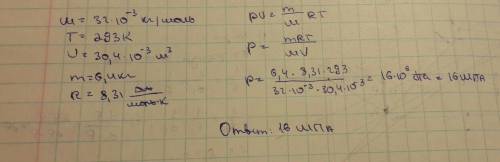 M = 32·10⁻³ кг/моль
T = 293К
V = 30,4·10⁻³ м³
m = 6,4 кг
R = 8,31 Дж/моль·К
pV = m/M RT
p = mRT/MV
p = 6,4 · 8,31 · 293 / 32·10⁻³ · 30,4·10⁻³ = 16·10⁶ Па = 16 МПа
Ответ: 16 МПа